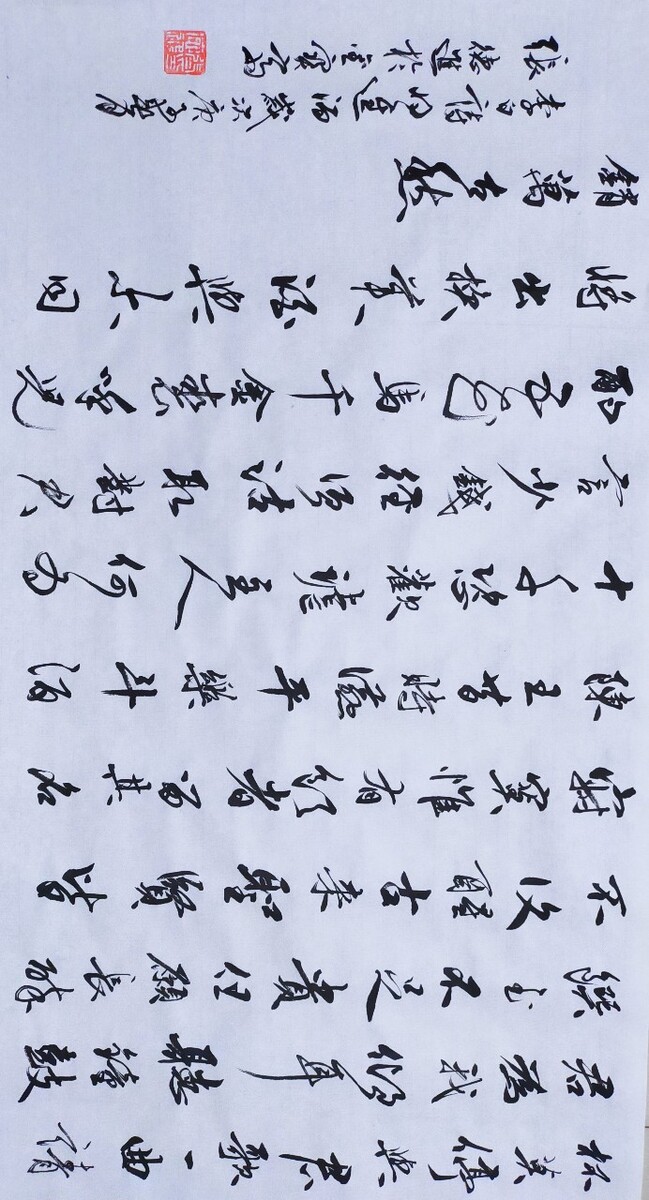 杯莫停與君歌一曲請
君為我傾耳聽鐘鼓
饌玉不足貴但願長醉
不復醒古來聖賢皆
寂寞惟有飲者留其名
陳王昔時讌平樂斗酒
十千恣歡謔主人何為
言少錢徑須沽取對君
酌五花馬千金裘呼兒
將出換美酒與尔同
銷萬古愁
李白詩將進酒歲次庚子夏月
張德進於